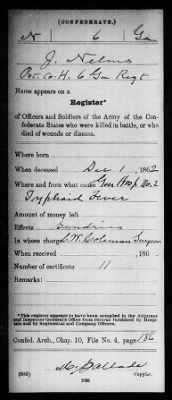 (CONFEDERATE.)
N 6 Ga
J. Nelms
Pvt Co. H. 6 Ga Regt
Name appears on a
Register*
of Officers and Soldiers of the Army of the Con-
federate States who were killed in battle, or who
died of wounds or disease.
Where born
When deceased Dec 1, 1862
Where and from what cause Gen Hosp No. 2
Typhoid Fever
Amount of money left
Effects Sundries
In whose charge W. Coleman Surgeon
When received , 186 .
Number of certificate 11
Remarks:
*This register appears to have been compiled in the Adjutant
and Inspector-General's Office from records furnished by Hospi-
tals and by Regimental and Company Officers.
Confed. Arch., Chap. 10, File No. 4, page 186
(635)
Copyist.